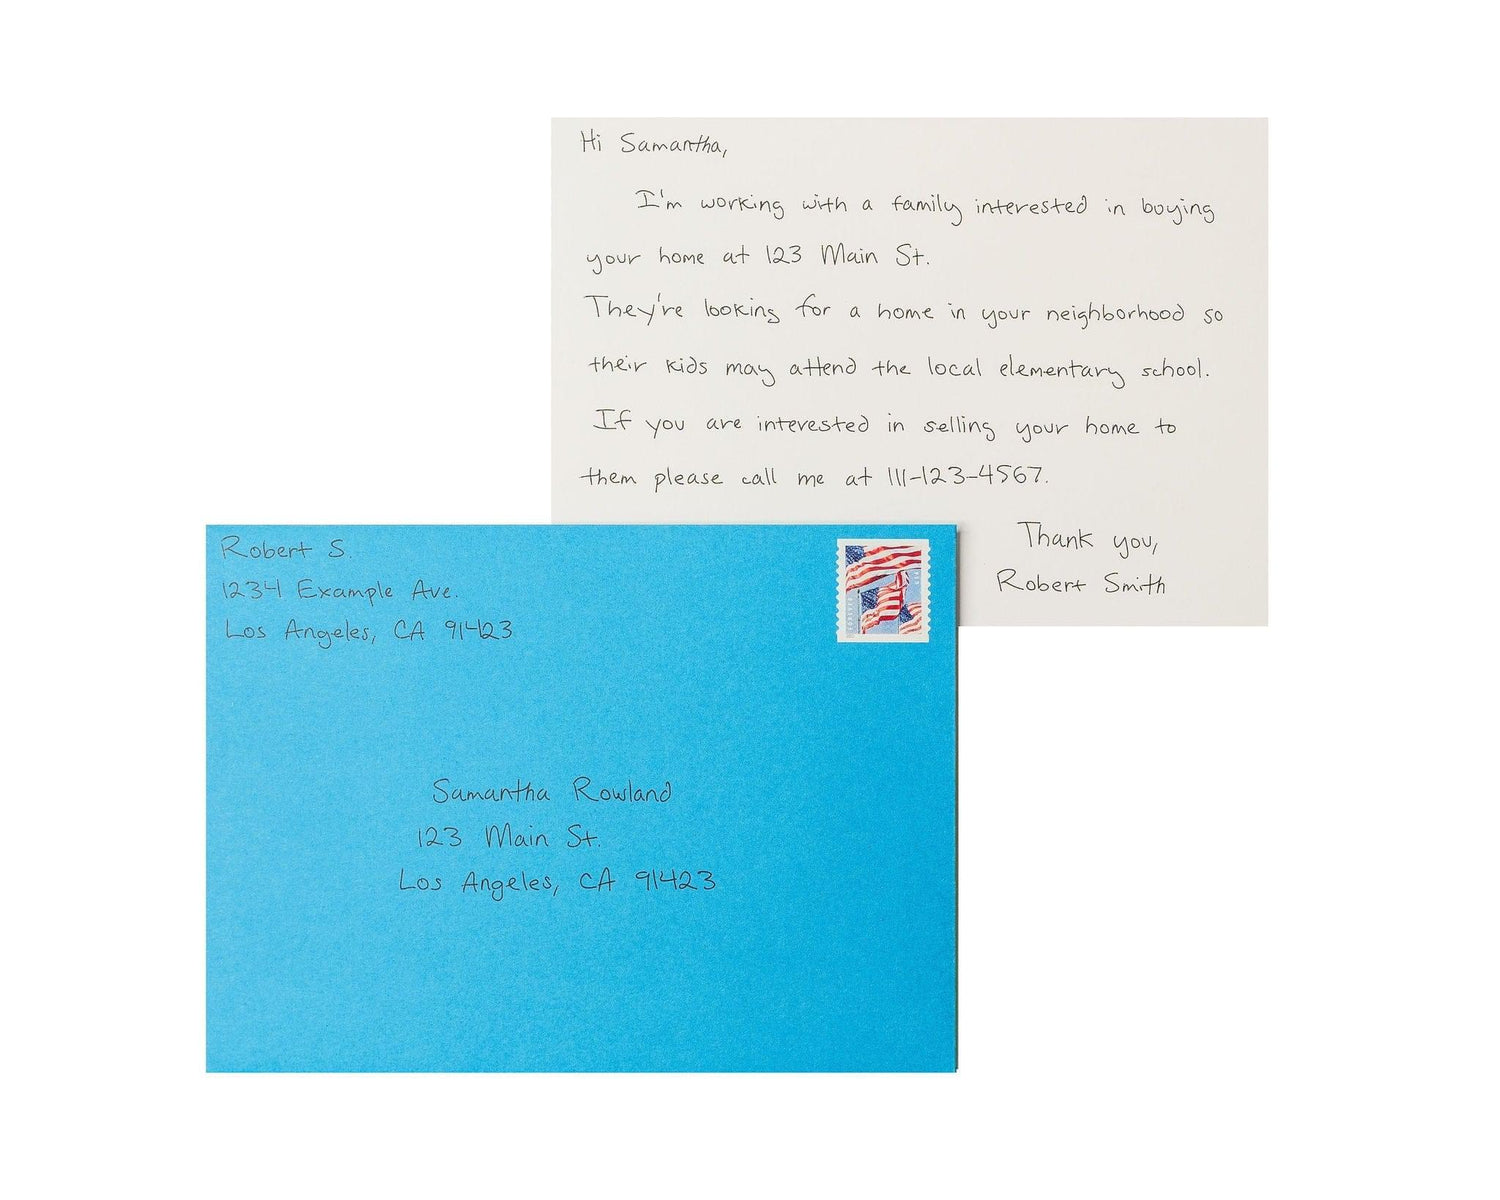 Hi Samantha,
I'm working with a family interested in buying
your home at 123 Main St.
They're looking for a home in your neighborhood so
their kids may attend the local elementary school.
If you are interested in selling your home to
them please call me at 111-123-4567.
Thank you,
Robert Smith
Robert S.
1234 Example Ave.
Los Angeles, CA 91423
FOREVER
USA
Samantha Rowland
123 Main St.
Los Angeles, CA 91423